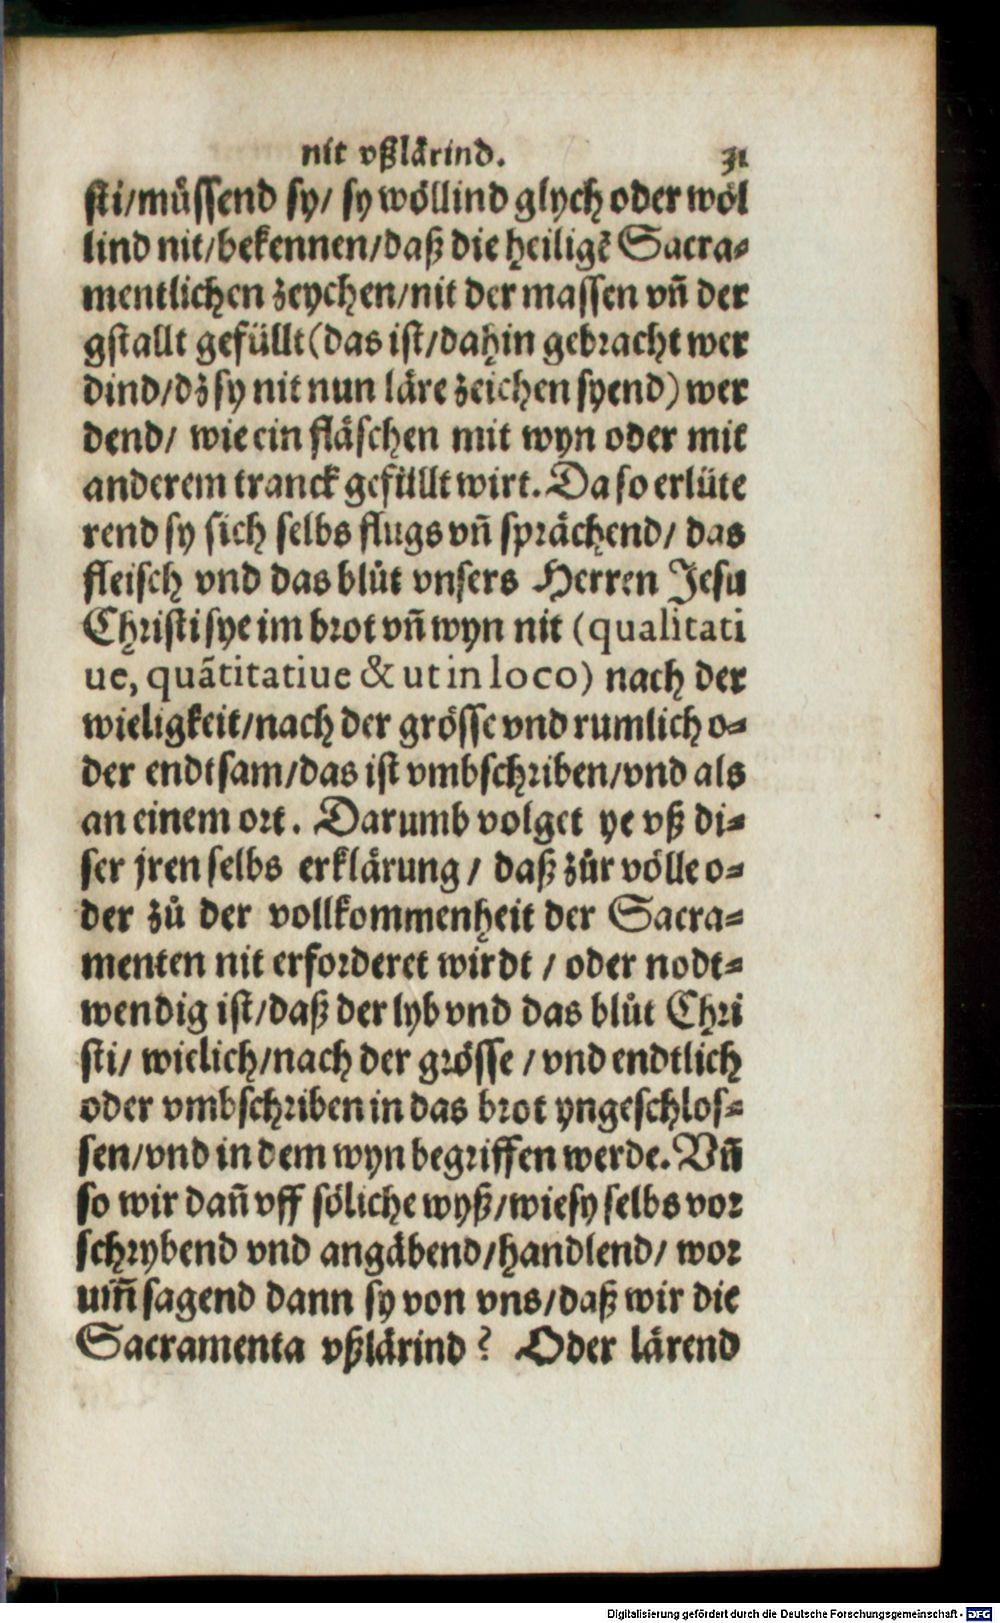 nit vßlärind. 31
sti/müssend sy/ sy wöllind glych oder wöl
lind nit/bekennen/daß die heiligē Sacra-
mentlichen zeychen/nit der massen vn̄ der
gstallt gefüllt (das ist/dahin gebracht wer
dind/dz sy nit nun läre zeichen syend) wer
dend/ wie ein fläschen mit wyn oder mit
anderem tranck gefüllt wirt. Da so erlüte
rend sy sich selbs flugs vn̄ sprächend/ das
fleisch vnd das blůt vnsers Herren Jesu
Christi sye im brot vn̄ wyn nit (qualitati
ue, quãtitatiue & ut in loco) nach der
wieligkeit/nach der grösse vnd rumlich o-
der endtsam/das ist vmbschriben/vnd als
an einem ort. Darumb volget ye vß di-
ser jren selbs erklärung/ daß zůr völle o-
der zů der vollkommenheit der Sacra-
menten nit erforderet wirdt/ oder nodt-
wendig ist/daß der lyb vnd das blůt Chri
sti/ wielich/nach der grösse/ vnd endtlich
oder vmbschriben in das brot yngeschlos-
sen/vnd in dem wyn begriffen werde. Vn̄
so wir dan̄ vff söliche wyß/wie sy selbs vor
schrybend vnd angäbend/handlend/ wor
um̄ sagend dann sy von vns/daß wir die
Sacramenta vßlärind? Oder lärend
Digitalisierung gefördert durch die Deutsche Forschungsgemeinschaft - DFG